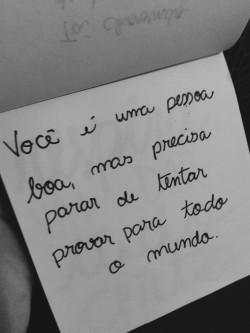 Você é uma pessoa
boa, mas precisa
parar de tentar
provar para todo
o mundo.